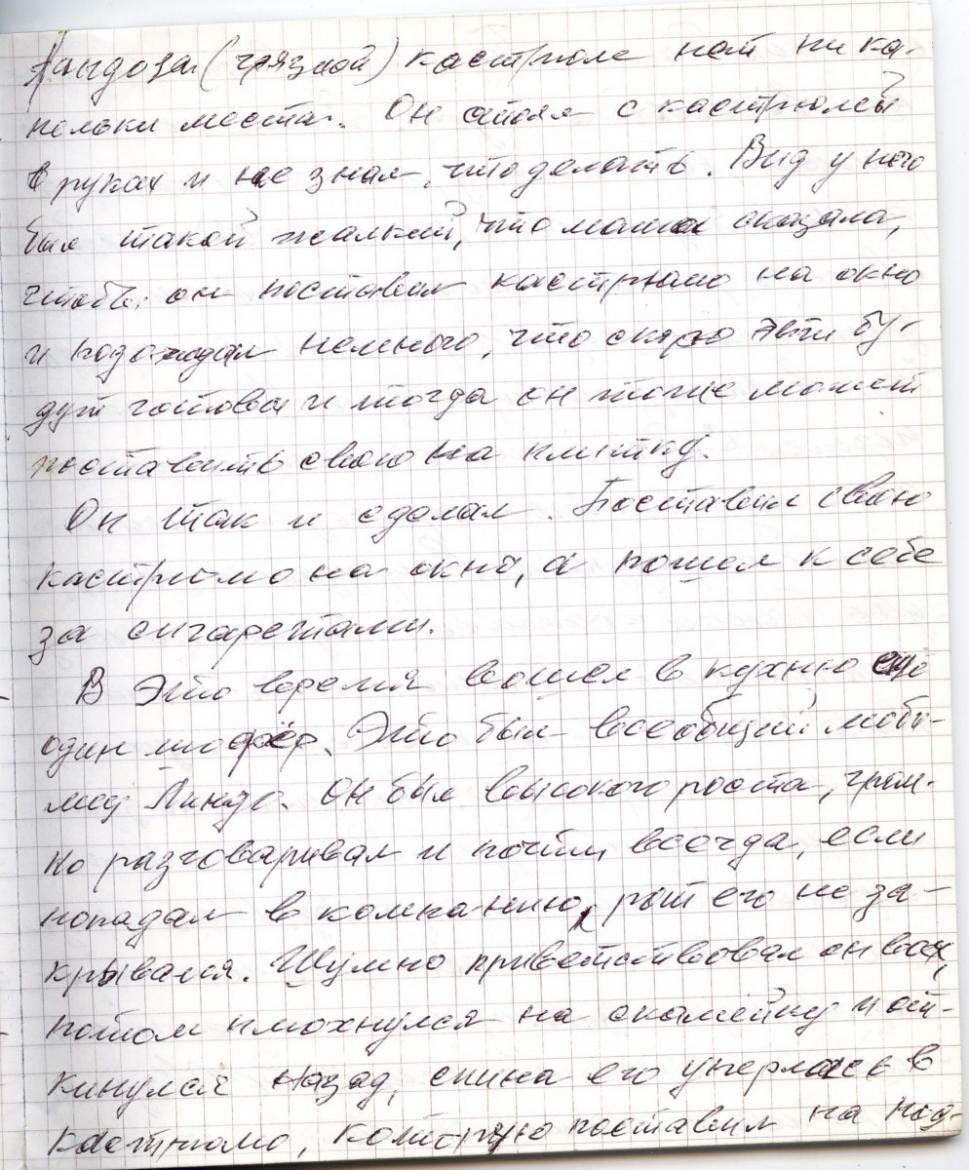 Яндоза (грязной) кастрюле нет ни ка-
пельки места. Он стоял с кастрюлей
в руках и не знал, что делать. Вид у него
был такой жалкий, что мама сказала,
чтобы он поставил кастрюлю на окно
и подождал немного, что скоро эти бу-
дут готовы и тогда он тоже может
поставить свою на плитку.
Он так и сделал. Поставил свою
кастрюлю на окно, а пошел к себе
за сигаретами.
В это время вошел в кухню ещё
один шофёр. Это был всеобщий люби-
мец Линдо. Он был высокого роста, гром-
ко разговаривал и почти всегда, если
попадал в компанию, рот его не за-
крывался. Шумно приветствовал он всех,
потом плюхнулся на скамейку и от-
кинулся назад, спина его уперлась в
кастрюлю, которую поставил на под-